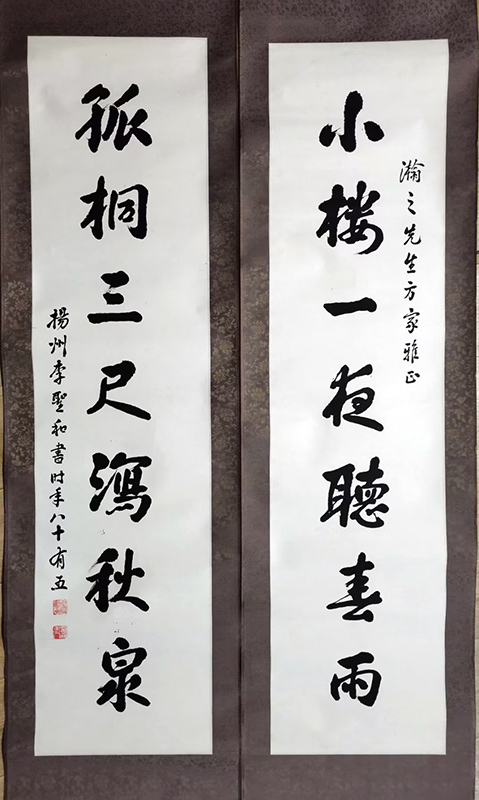 瀚之先生方家雅正
小楼一夜聽春雨
孤桐三尺瀉秋泉
揚州李聖和書时年八十有五